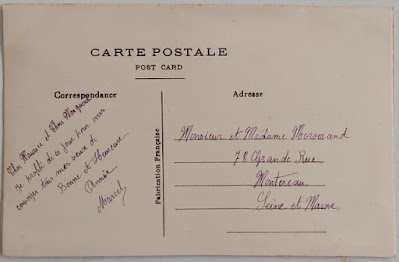 CARTE POSTALE
POST CARD
Correspondance
Cher Maurice et Chère Marguerite
Je profite de ce jour pour vous
envoyer tous mes vœux de
Bonne et Heureuse
Année
Marcel
Fabrication Française
Adresse
Monsieur et Madame
78 Grande Rue
Montereau
Seine et Marne